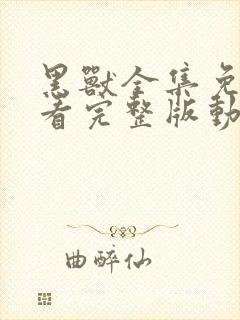 黑獸全集免
看完整版動
曲醉仙